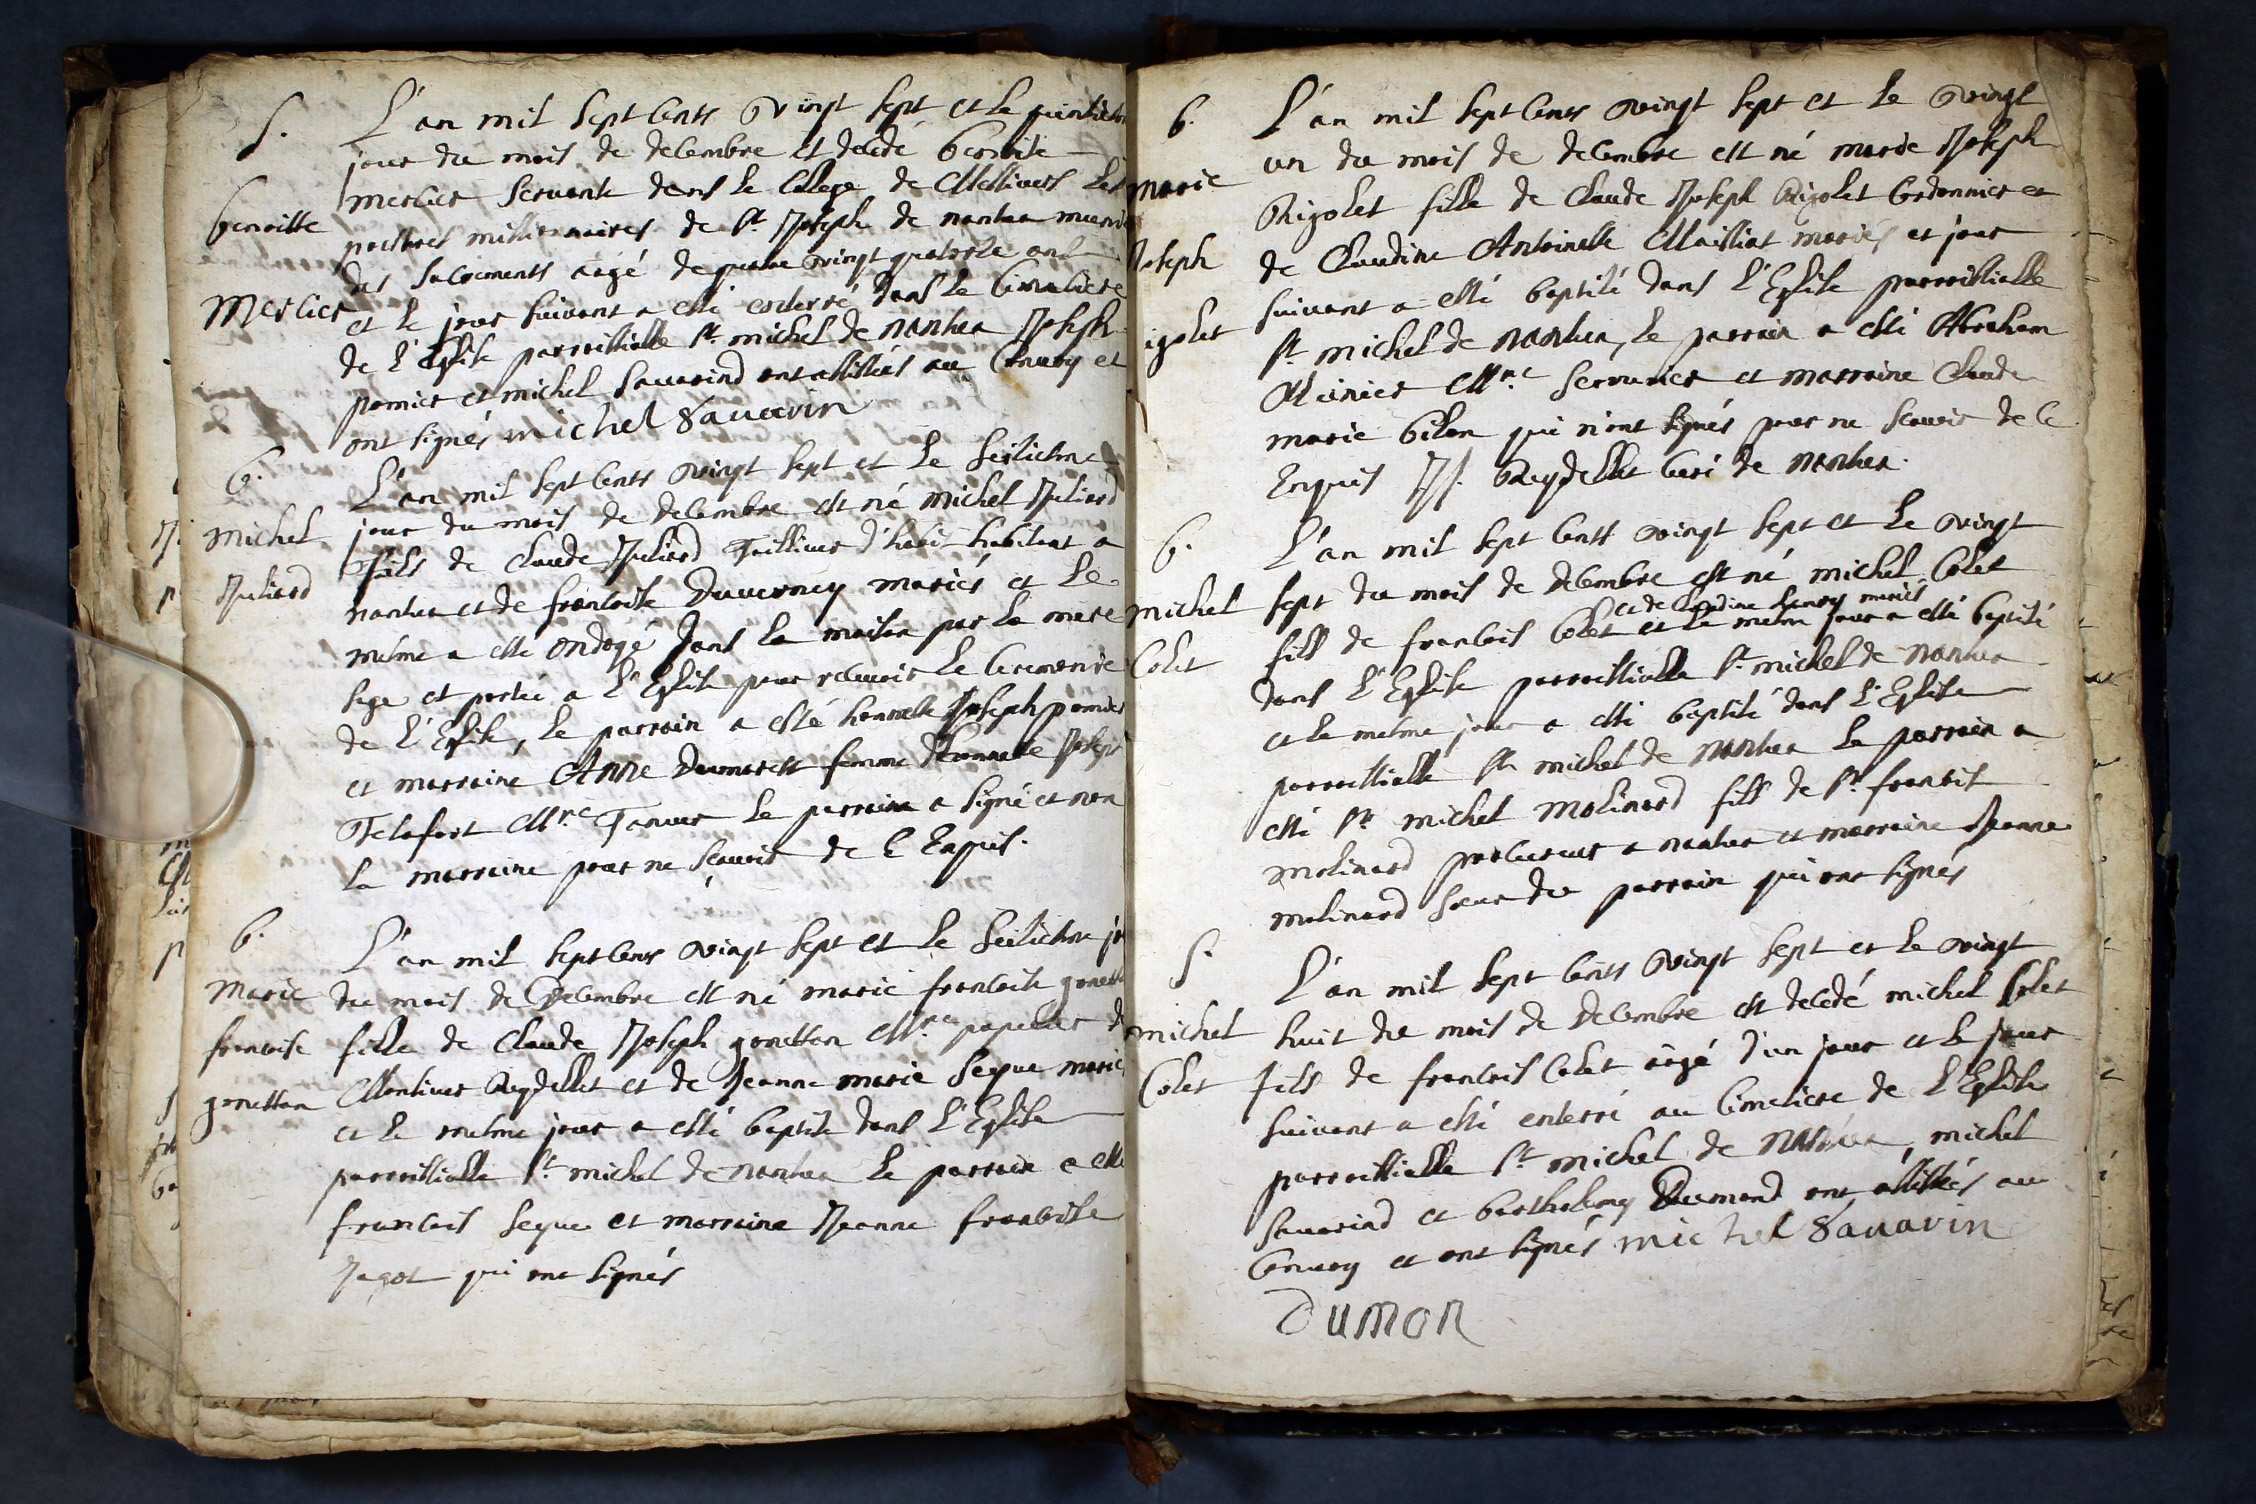 S.
benoitte
Merlier
L'an mil sept cents vingt sept et le quinzieme
jour du mois de decembre est decedé benoite
merlier servante dans le College de Messieurs les
prestres missionnaires de St Joseph de nantua munie
des sacrements aegé de quatre vingt quatorze ans
et le jour suivant a esté enterré dans le Cimetiere
de l'Eglise parroissialle St michel de nantua Joseph
pomier et michel Sauarind ont assistés au Convoy et
ont signés michel Sauarin
b.
Michel
Juliard
L'an mil sept cents vingt sept et le seizieme
jour du mois de decembre est né michel Juliard
fils de Claude Juliard Tailleur d'habit habitant a
nantua et de francoise Duverney mariés et le
même a esté ondoyé dans la maison par la mere
sage et portée a l'Eglise pour recevoir le Ceremonie
de l'Eglise, le parrain a esté honneste Joseph pomier
et marraine Anne Dumarest femme d'honneste Joseph
Telafort Mre Tanneur le parrain a signé et non
la marraine pour ne sçauoir de l'Enquis.
b.
Marie
francoise
gonetton
L'an mil sept cens vingt sept et le seizieme jo
du mois de Decembre est né marie francoise gonetton
fille de Claude Joseph gonetton Mre papetier de
Monsieur Reydellet et de Jeanne marie Seque mariés
et le même jour a esté baptisé dans l'Eglise
parroissialle St michel de nantua le parrain a esté
francois Seque et marraine Jeanne francoise
Jagot qui ont signés
b.
Marie
Joseph
igolet
L'an mil sept cens vingt sept et le vingt
un du mois de decembre est né marie Joseph
Rigolet fille de Claude Joseph Rigolet Cordonnier et
de Claudine Antoinette Maissiat mariés et jour
suivant a esté baptisé dans l'Eglise parroissialle
St michel de nantua, le parrain a esté Abraham
Munier Mre Serrurier et marraine Claude
marie bilon qui n'ont signés pour ne sçauoir de ce
Enquis JJ. Reydellet Curé de nantua.
b.
michel
Colet
L'an mil sept cents vingt sept et le vingt
sept du mois de decembre est né michel Colet
et de Claudine mariés
fils de francois Colet et le même jour a esté baptisé
dans l'Eglise parroissialle St michel de nantua
et le même jour a esté baptisé dans l'Eglise
parroissialle St michel de nantua le parrain a
esté Sr michel Molinard fils de Sr francois
Molinard procureur a nantua et marraine Jeanne
molinard soeur du parrain qui ont signés
S.
michel
Colet
L'an mil sept cents vingt sept et le vingt
huit du mois de Decembre est decedé michel Colet
fils de francois Colet aegé d'un jour et le jour
suivant a esté enterré au Cimetiere de l'Eglise
parroissialle St michel de nantua, michel
Sauarind et barthelemy Dumond ont assistés au
Convoy et ont signés michel Sauarin
Dumon